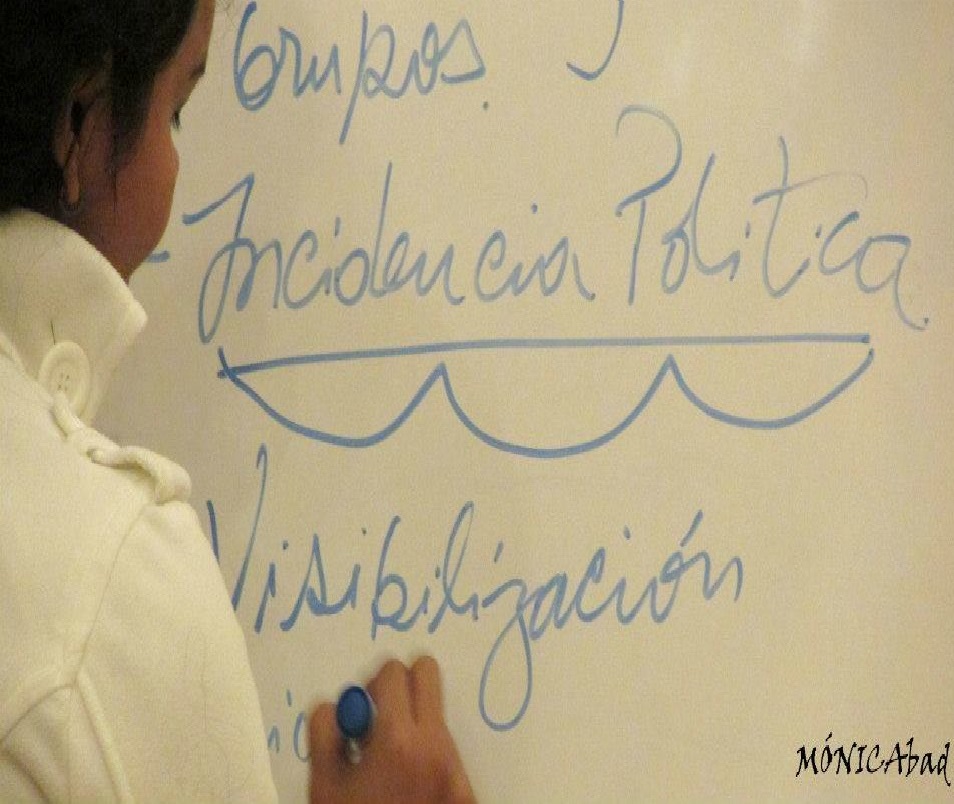 Grupos.
- Incidencia Política
Visibilización
MÓNICAbad